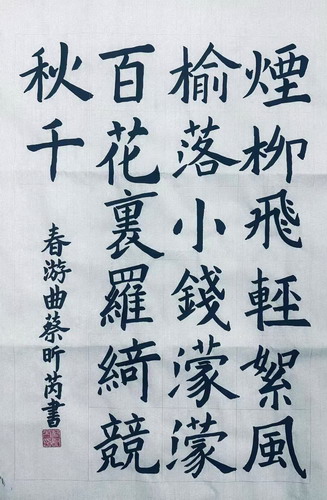 煙柳飛輕絮風
榆落小錢濛濛
百花裏羅綺競
秋千
春游曲蔡昕芮書